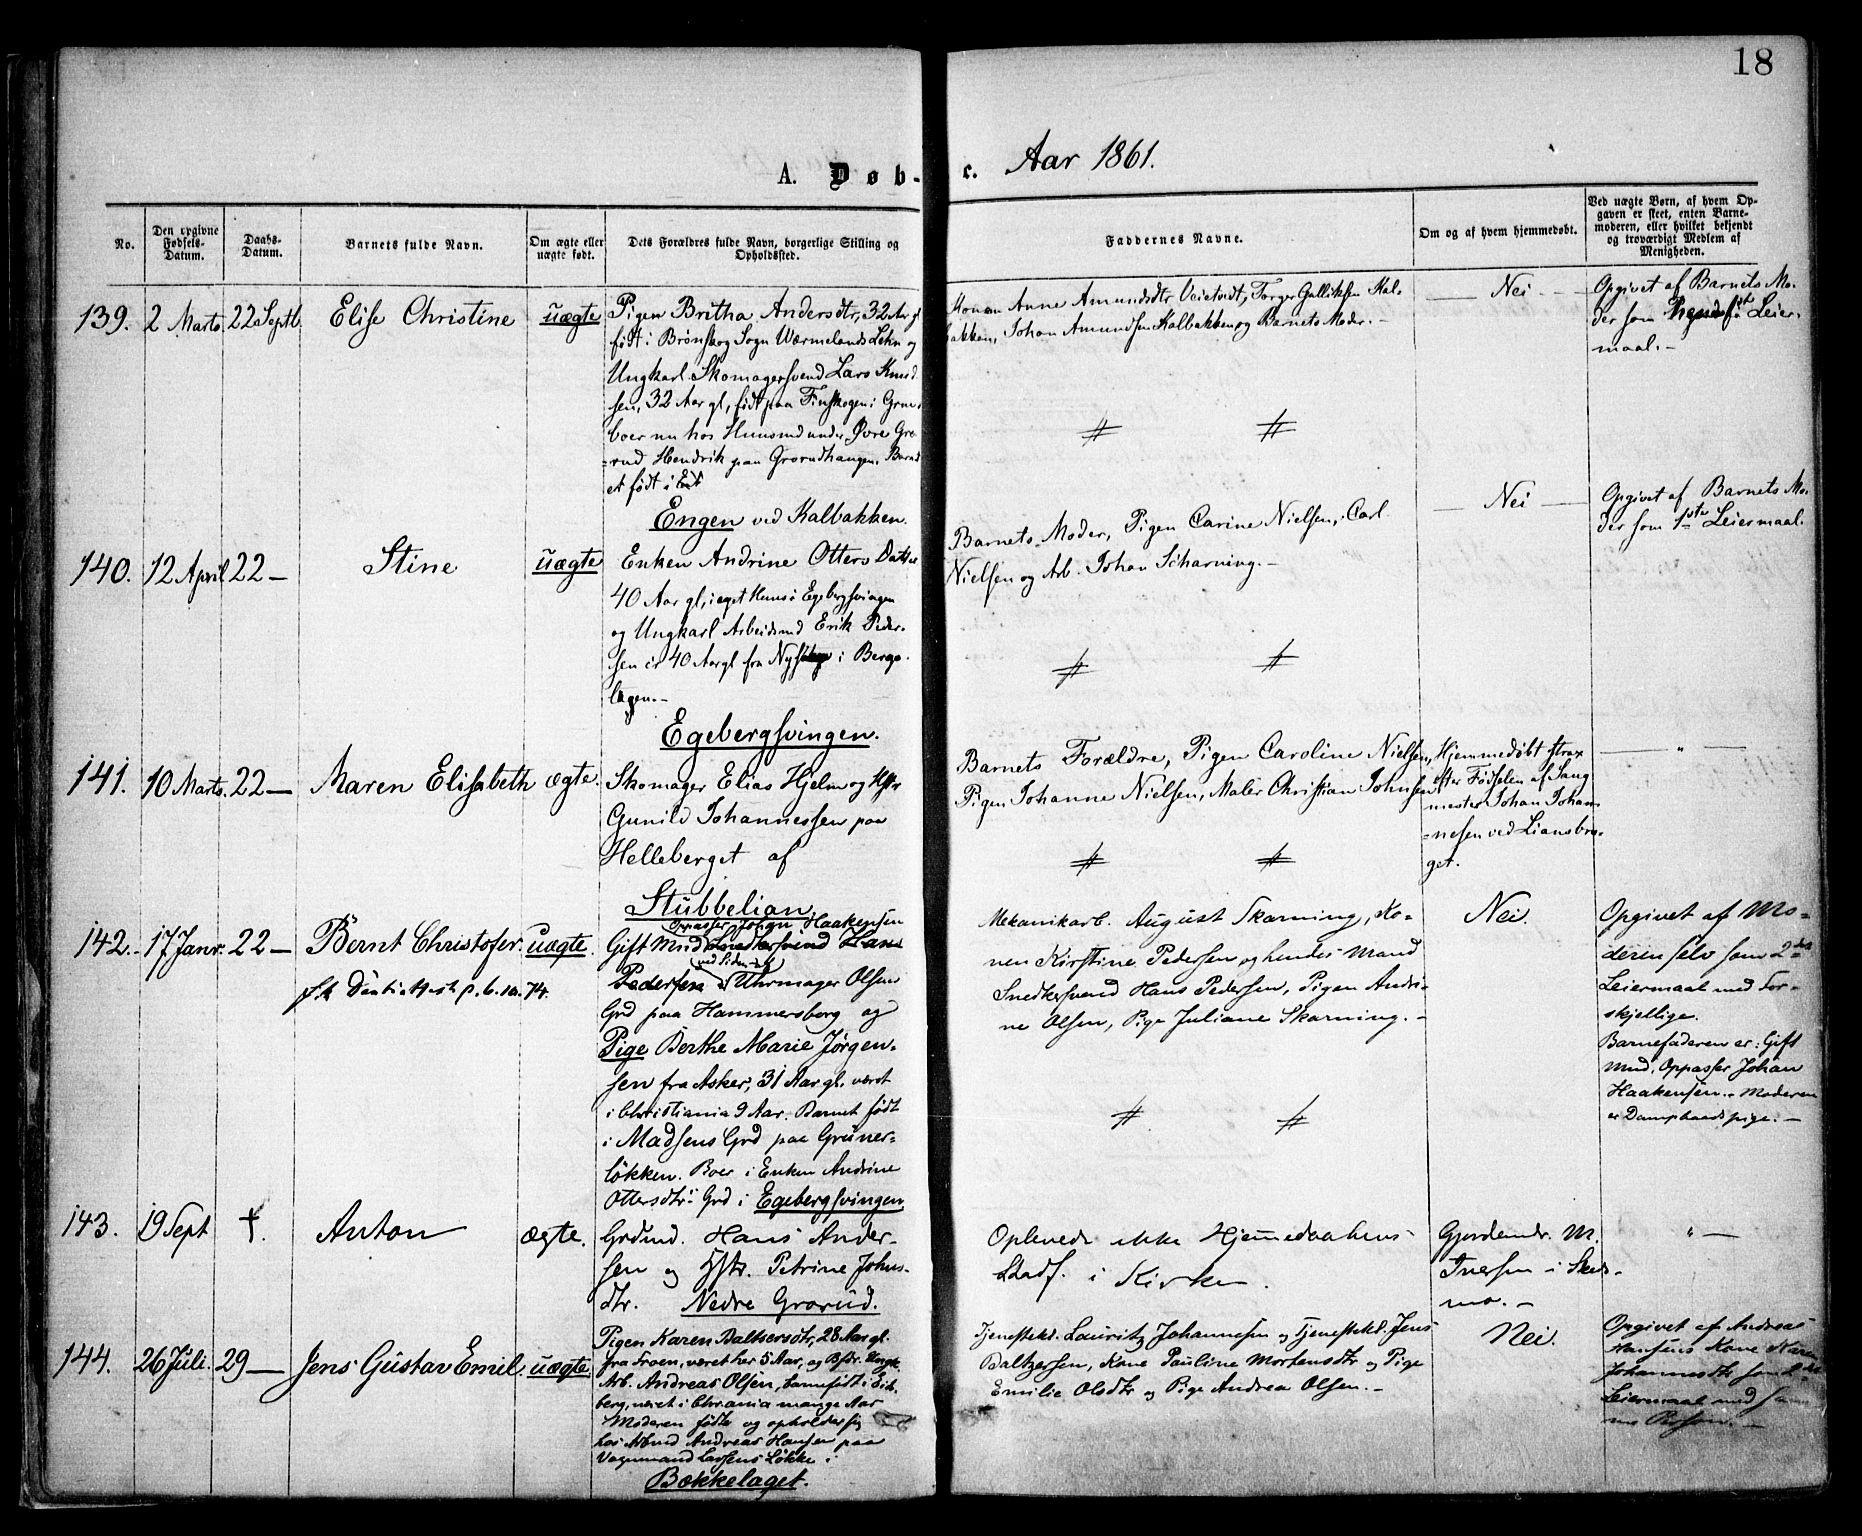 18
A. Døb-
c. Aar 1861.
No.
Den opgivne Fødsels-Datum.
Daabs-Datum.
Barnets fulde Navn.
Om ægte eller uægte født.
Dets Forældres fulde Navn, borgerlige Stilling og Opholdssted.
Faddernes Navne.
Om og af hvem hjemmedøbt.
Ved uægte Børn, af hvem Op-
gaven er skeet, enten Barne-
moderen, eller hvilket bekjendt
og troværdigt Medlem af
Menigheden.
139. 2 Marts 22 Septb Elise Christine uægte
Pigen Britha Andersdtr, 32 Aar gl
født i Brønskog Sogn Wærmelands Lehn og
Ungkarl Skomagersvend Lars Knud
sen, 32 Aar gl, født paa Finskogen i Grue
boer nu hos Huusmd under Øvre Gro-
rud Hendrik paa Grorudhaugen. Barn
et født i
Engen ved Kalbakken.
Konen Anne Amundsdtr Veitvedt, Torger Gulliksen Kal-
bakken, Johan Amundsen Kalbakken og Barnets Moder.-
Nei
Opgivet af Barnets Mo-
der som Leier-
maal.-
140. 12 April 22 — Stine uægte
Enken Andrine Otters Datter
40 Aar gl, i eget Huus i Egebergsvingen
og Ungkarl Arbeidsmd Erik Peder-
sen er 40 Aar gl fra i Bergs-
lagen.-
Egebergsvingen.
Barnets Moder, Pigen Carine Nielsen, Carl
Nielsen og Arb. Johan Scharning.-
Nei
Opgivet af Barnets Mo-
der som 1ste Leiermaal.
141. 10 Marts. 22 — Maren Elisabeth ægte.
Skomager Elias Hjelm og Hstr
Gunild Johannessen paa
Helleberget af
Stubbelian
Barnets Forældre, Pigen Caroline Nielsen,
Pigen Johanne Nielsen, Maler Christian Johnsen
Hjemmedøbt strax
efter Fødselen af Sang
mester Johan Johan
-nesen ved Liansbra-
get.
— " —
142. 17 Janr. 22 — Bernt Christofer. uægte.
Oppasser Johan Haakensen
Gift Mand Snedkersvend Hans
Pedersen Uhrmager Olsens
Grd paa Hammersborg og
Pige Berthe Marie Jørgen-
sen fra Asker, 31 Aar gl. været
i Christiania 9 Aar. Barnet født
i Madsens Grd paa Grüner-
løkken. Boer i Enken Andrine
Ottersdtrs Grd i Egebergsvingen
74.
Mekanikarb. August Skarning, Ko-
nen Kirstine Pedersen og hendes Mand
Snedkersvend Hans Pedersen, Pigen Andri-
ne Olsen, Pige Juliane Skarning.-
Nei.
Opgivet af Mo-
deren selv som 2det
Leiermaal med For-
skjellige.
Barnefaderen er: Gift
Mand, Oppasser Johan
Haakensen.- Moderen
er pige.-
143. 19 Sept †. Anton ægte.
Grdmd. Hans Ander-
sen og Hstr. Petrine Johns-
dtr. Nedre Grorud.
Oplevede ikke Hjemmedaabens
Stadf. i Kirken.
Gjordemdr. M.
Iversen i Skeds-
mo.-
" —
144. 26 Juli. 29 — Jens Gustav Emil. uægte.
Pigen Karen Baltzersdtr, 28 Aar gl.
fra Froen, været her 5 Aar, og
Arb. Andreas Olsen, barnefødt i Eid-
berg, været i Chrania mange Aar
Moderen fødte og opholder sig
hos Arbmd Andreas Hansen paa
Vognmand Lassens Løkke i
Bækkelaget.
Tjenestekl. Lauritz Johannesen og Tjenestekl. Jens
Baltzersen, Kone Pauline Mortensdtr og Pige
Emilie Olsdtr og Pige Andrea Olsen.-
Nei.
Opgivet af Andreas
Hansens Kone
Johannesdtr som 2det
Leiermaal med sam
me Person.-